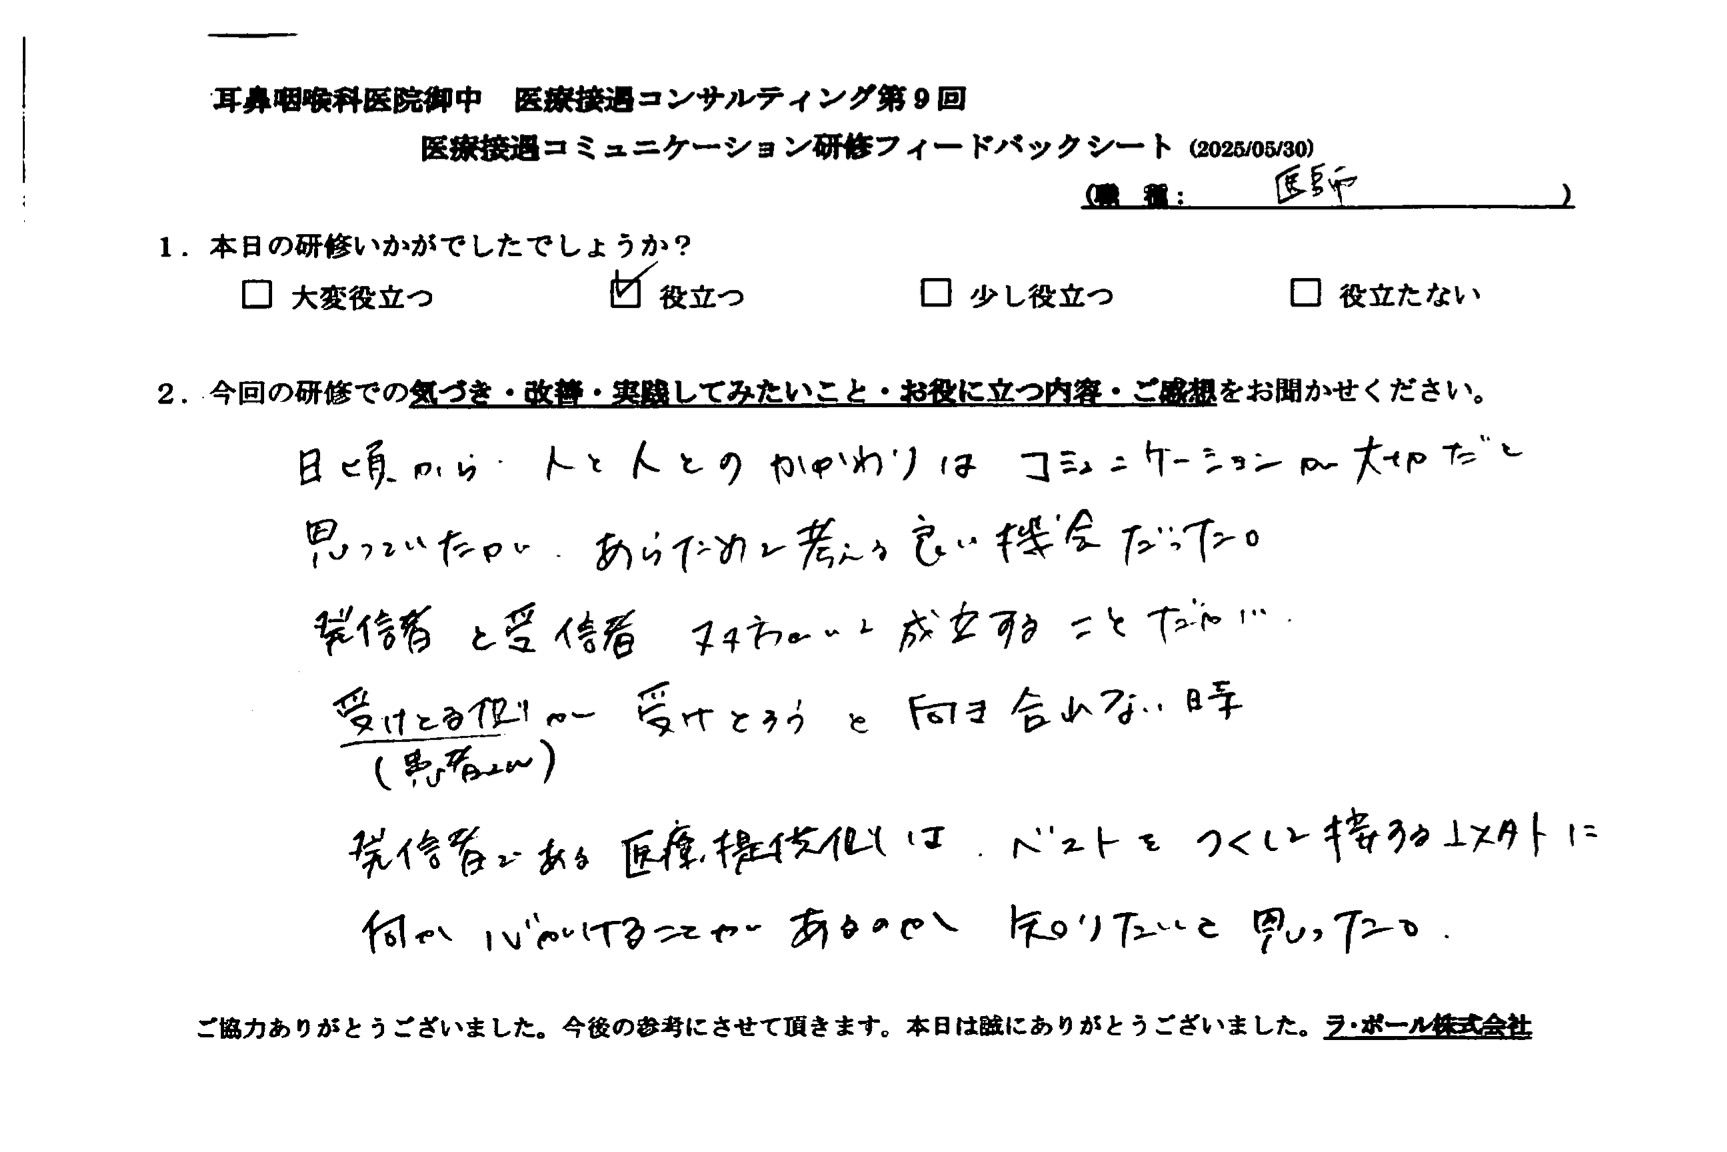 耳鼻咽喉科医院御中 医療接遇コンサルティング第9回
医療接遇コミュニケーション研修フィードバックシート (2025/05/30)
(職 種: 医師 )
1. 本日の研修いかがでしたでしょうか?
☐ 大変役立つ ☑ 役立つ ☐ 少し役立つ ☐ 役立たない
2. 今回の研修での気づき・改善・実践してみたいこと・お役に立つ内容・ご感想をお聞かせください。
日頃から、人と人とのかかわりは コミュニケーションが大切だと
思っていたが、あらためて考える良い機会だった。
発信者と受信者 双方がいて成立することだが…
受けとる側が 受けとろうと 向き合れない時
(患者さん)
発信者である医療提供側は、ベストをつくして接する以外に
何か心がけることがあるのか 知りたいと思った。
ご協力ありがとうございました。今後の参考にさせて頂きます。本日は誠にありがとうございました。ラ・ポール株式会社